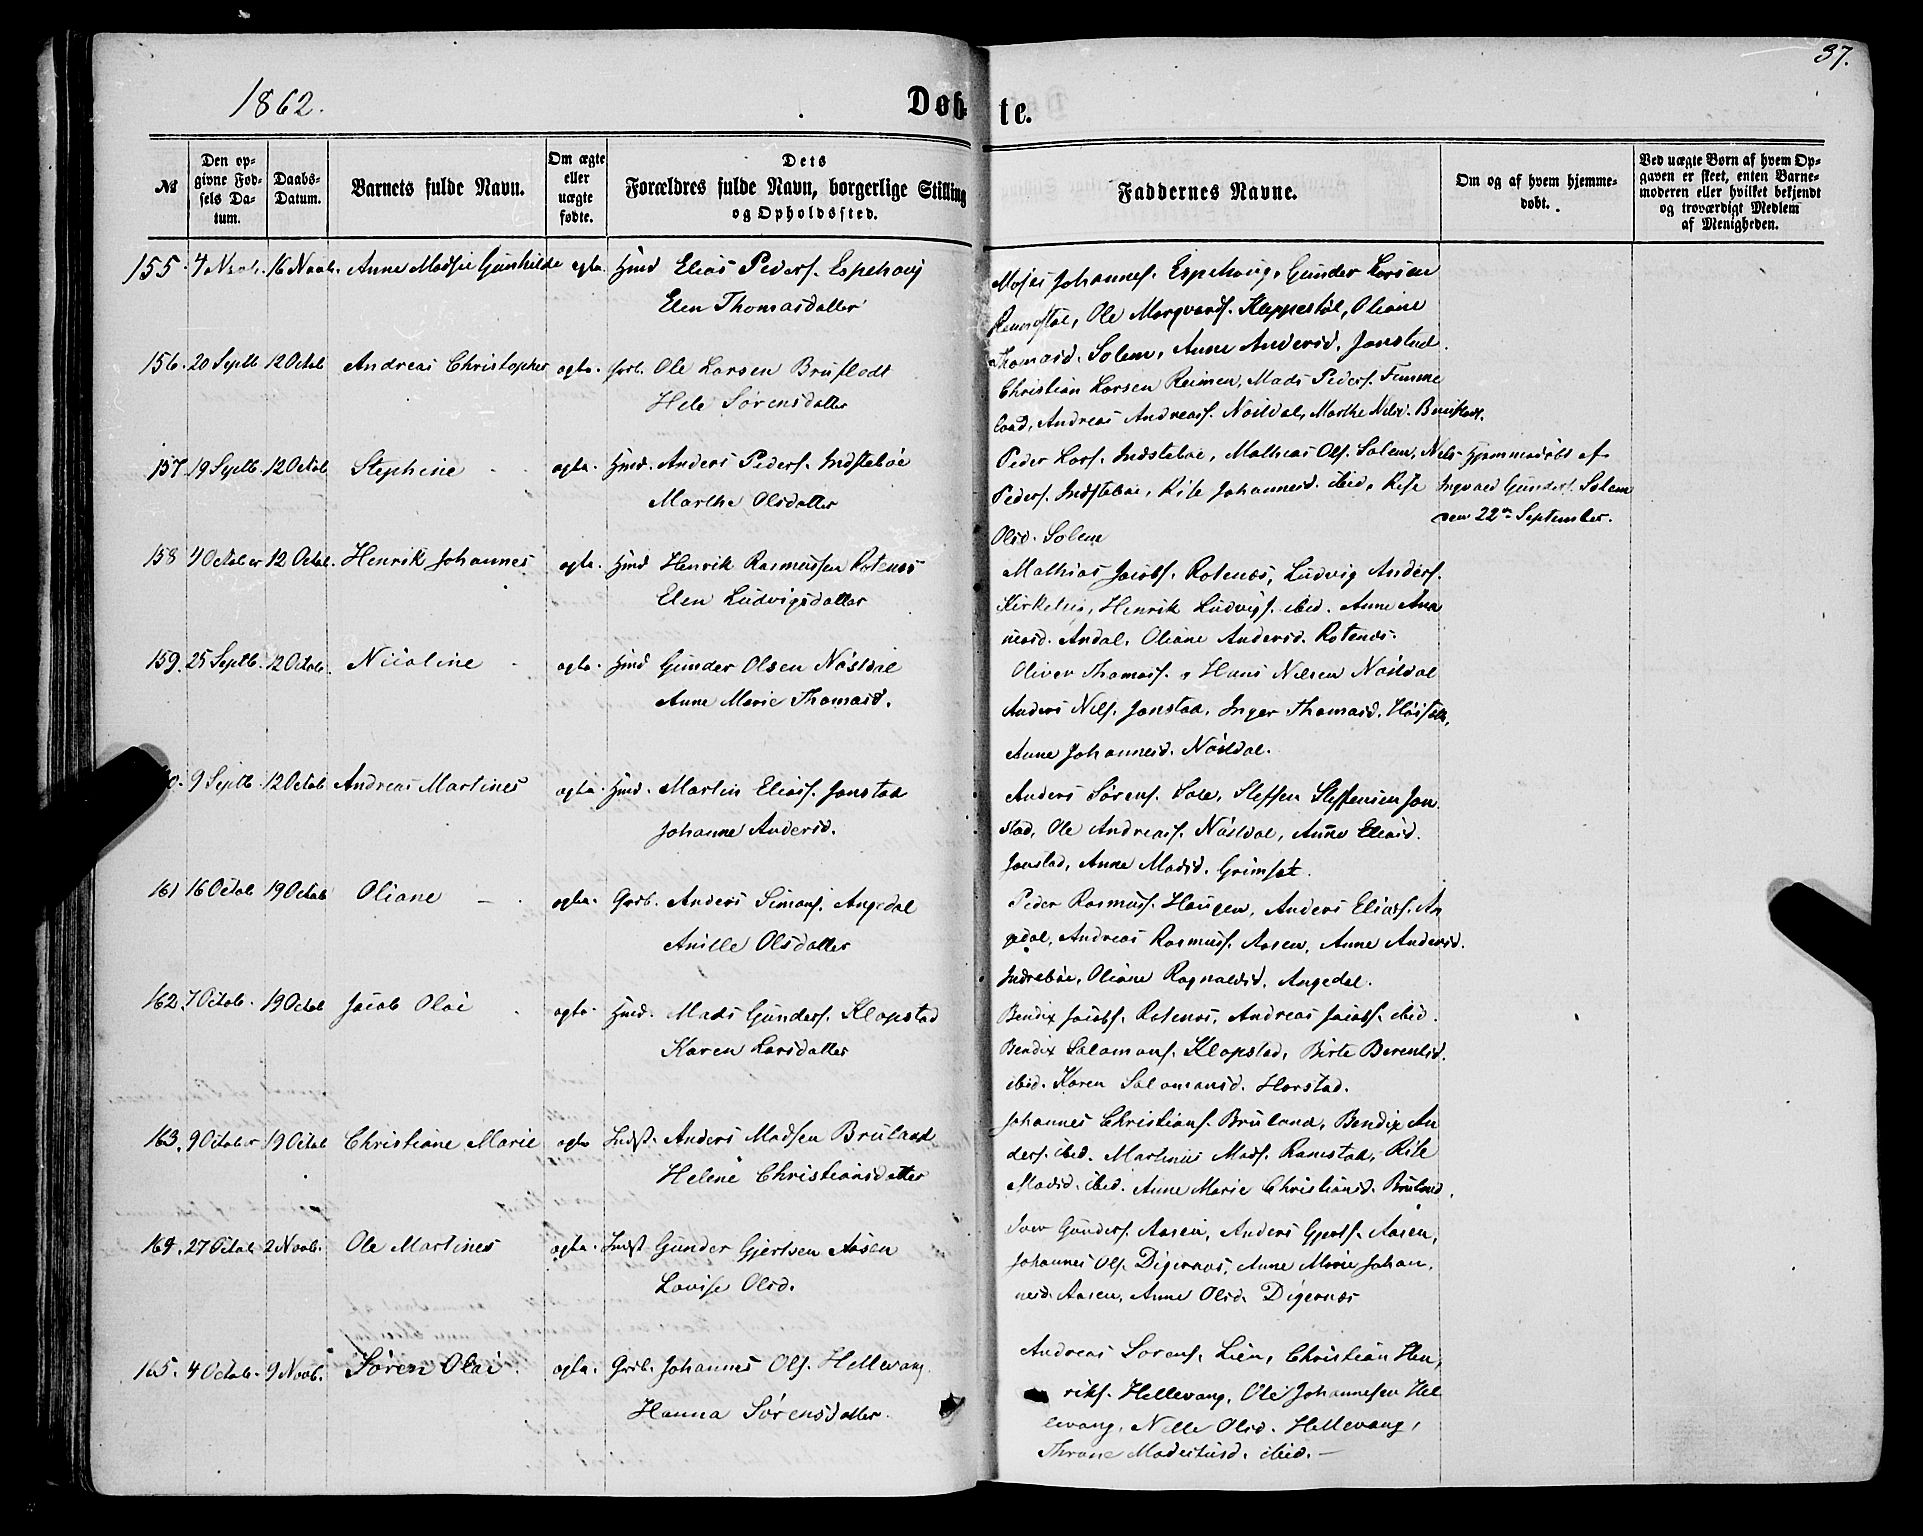 1862.
Døbte.
37.
№
Den opgivne Fødsels Datum.
Daabs-Datum.
Barnets fulde Navn.
Om ægte eller uægte fødte.
Dets Forældres fulde Navn, borgerlige Stilling og Opholdssted.
Faddernes Navne.
Om og af hvem hjemmedøbt.
Ved uægte Børn af hvem Opgaven er skeet, enten Barnemoderen eller hvilket bekjendt og troværdigt Medlem af Menigheden.
155. 4 Novb. 16 Novb. Anne Madsie Gunhilde egta. Hmd Elias Peders. Espehoug
Elen Thomasdatter
Moses Johannes. Espehoug, Gunder Larsen
Ole Marqvards. Kleppestøl, Oliane
Thomasd. Solem, Anne Andersd. Jonstad.
156. 20 Septb 12 Octob Andreas Christopher egta. Grb. Ole Larsen Bruflodt
Hele Sørensdatter
Christian Larsen Reimen, Mads Peders. Femme
land, Andreas Andreass. Nøsdal, Marthe Nilsd. Bruflodt.
157. 19 Septb. 12 Octob Stephine egta. Hmd. Anders Peders. Indstebøe
Marthe Olsdatter
Peder Lars. Indstebøe, Mathias Ols. Solem, Nels
Peders. Indstebøe, Rise Johannesd. ibid, Rise
Olsd. Solem
Hjemmedøbt af
Ingvald Gunders. Solem
den 22de September.
158 4 October 12 Octob. Henrik Johannes egta. Hmd Henrik Rasmussen Rotenes
Elen Ludvigsdatter
Mathias Jacobs. Rotenes, Ludvig Anders.
Kirkelie, Henrik Ludvigs. ibid. Anne And
reasd. Andal, Oliane Andersd. Rotenes.
159. 25 Septb. 12 Octob. Nicoline egta. Hmd Gunder Olsen Nøsdal
Anne Marie Thomasd.
Oliver Thomass. & Hans Nilsen Nøsdal
Anders Nils. Jonstad, Inger Thomasd.
Anne Johannesd. Nøsdal.
0. 9 Septb. 12 Octob Andreas Martines egta. Hmd. Martin Eliass. Jonstad
Johanne Andersd.
Anders Sørens. Sole, Steffen Steffensen Jon
stad, Ole Andreass. Nøsdal, Anne Eliasd.
Jonstad, Anne Madsd. Grimset.
161 16 Octob 19 Octob Oliane — egta. Grb. Anders Simons. Angedal
Anille Olsdatter
Peder Rasmuss. Haugen, Anders Eliass. An
gedal, Andreas Rasmuss. Aasen, Anne Andersd.
Indrebøe, Oliane Ragnaldsd. Angedal.
162. 7 Octob. 19 Octob Jacob Olai egta. Hmd. Mads Gunders. Klopstad
Karen Larsdatter
Bendix Jacobs. Rotenes, Andreas Jacobs. ibid.
Bendix Salamons. Klopstad, Birte Berentsd.
ibid. Karen Salomonsd. Horstad.
163. 9 October 19 Octob Christiane Marie egta Indst. Anders Madsen Bruland
Helene Christiansdatter
Johannes Christians. Bruland, Bendix An
ders. ibid. Martinus Mads. Ramstad, Rise
Madsd. ibid. Anne Marie Christiansd. Bruland.
164. 27 Octob 2 Novb. Ole Martines egta. Indst Gunder Gjertsen Aasen
Lovise Olsd.
Iver Gunders. Aasen, Anders Gjerts. Aasen,
Johannes Ols. Digernes, Anne Marie Johan.
nesd. Aasen, Anne Olsd. Digernes
165. 4 Octob. 9 Novb. Søren Olai egta. Grb. Johannes Ols. Hellevang.
Hanna Sørensdatter.
Andreas Sørens. Lien, Christian Hen,
riks. Hellevang, Ole Johannesen Hel
levang, Nille Olsd. Hellevang,
Madsd. ibid. —